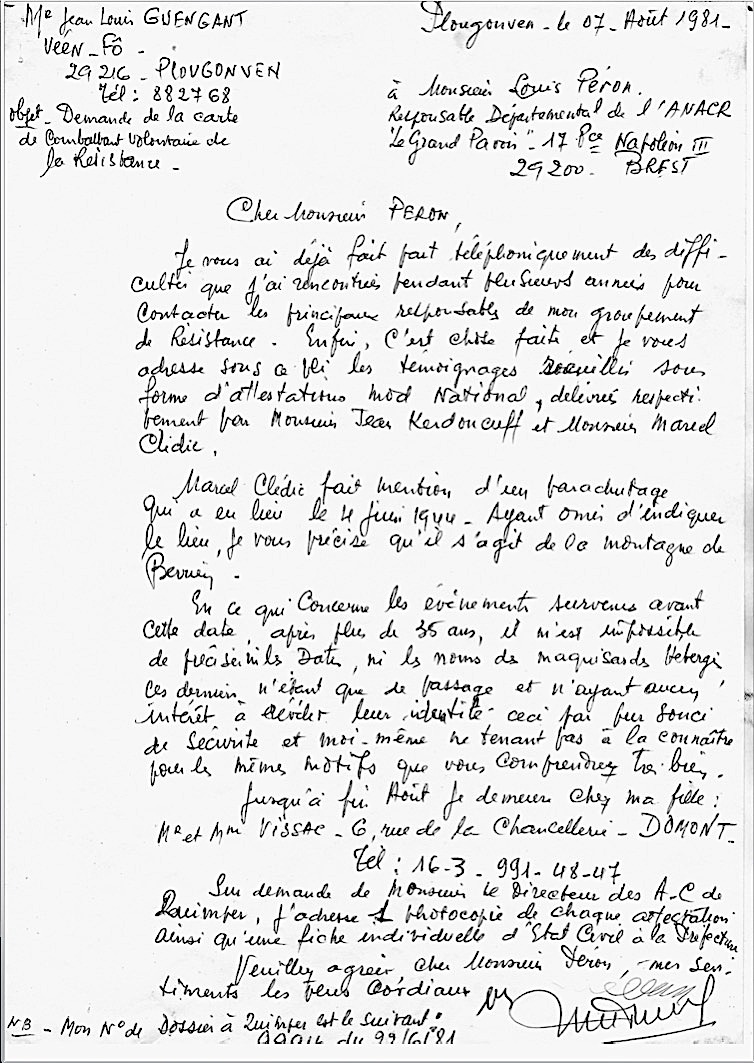 Mr Jean Louis GUENGANT
VéEN-Fô -
29216 - PLOUGONVEN
Tél : 882768
objet - Demande de la carte
de Combattant Volontaire de
la Résistance -
Plougonven - le 07 - Août 1981 -
à Monsieur Louis Péron.
Responsable Départemental de l'ANACR
"Le Grand Pavois" - 17 Pce Napoléon III
29200 - BREST
Cher Monsieur PERON,
Je vous ai déjà fait part téléphoniquement des diffi-
cultés que j'ai rencontrées pendant plusieurs années pour
contacter les principaux responsables de mon groupement
de Résistance - Enfin, c'est chose faite et je vous
adresse sous ce pli les témoignages recueillis sous
forme d'attestations mod National, délivrés respecti
vement par Monsieur Jean Kerdoncuff et Monsieur Marcel
Clédic.
Marcel Clédic fait mention d'un parachutage
qui a eu lieu le 4 Juin 1944 - Ayant omis d'indiquer
le lieu, je vous précise qu'il s'agit de la montagne de
Berrien -
En ce qui concerne les événements survenus avant
cette date, après plus de 35 ans, il m'est impossible
de préciser ni les Dates, ni les noms des maquisards héberge
ces derniers n'étant que de passage et n'ayant aucun
intérêt à décéder leur identité ceci par pur souci
de sécurité et moi-même ne tenant pas à la connaître
pour les mêmes motifs que vous comprendrez très bien.
Jusqu'à fin Août je demeure chez ma fille :
Mr et Mme VISSAC - 6, rue de la Chancellerie - DOMONT -
Tél : 16-3-991-48-47
Sur demande de Monsieur le Directeur des A-C de
Quimper, j'adresse 1 photocopie de chaque attestation
ainsi qu'une fiche individuelle d'Etat Civil à la Préfecture
Veuillez agréer, cher Monsieur Péron, mes sen-
timents les plus cordiaux
NB - Mon N° de Dossier à Quimper est le suivant :
du 22/6/81